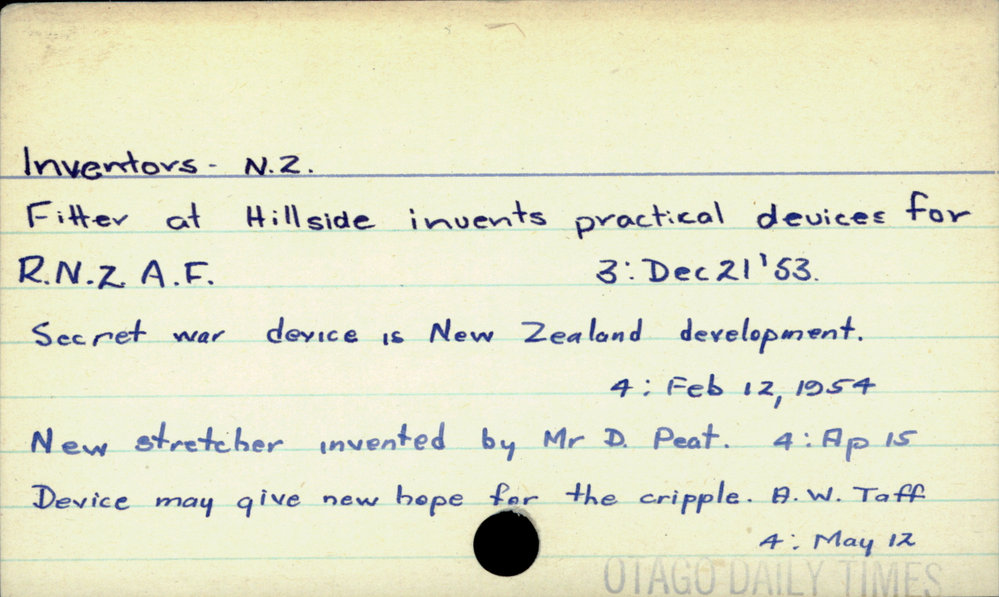 Inventors - N.Z.
Fitter at Hillside invents practical devices for
R.N.Z.A.F. 3: Dec 21 '53.
Secret war device is New Zealand development.
4: Feb 12, 1954
New stretcher invented by Mr D. Peat. 4: Ap 15
Device may give new hope for the cripple. A. W. Taff
4: May 12
OTAGO DAILY TIMES